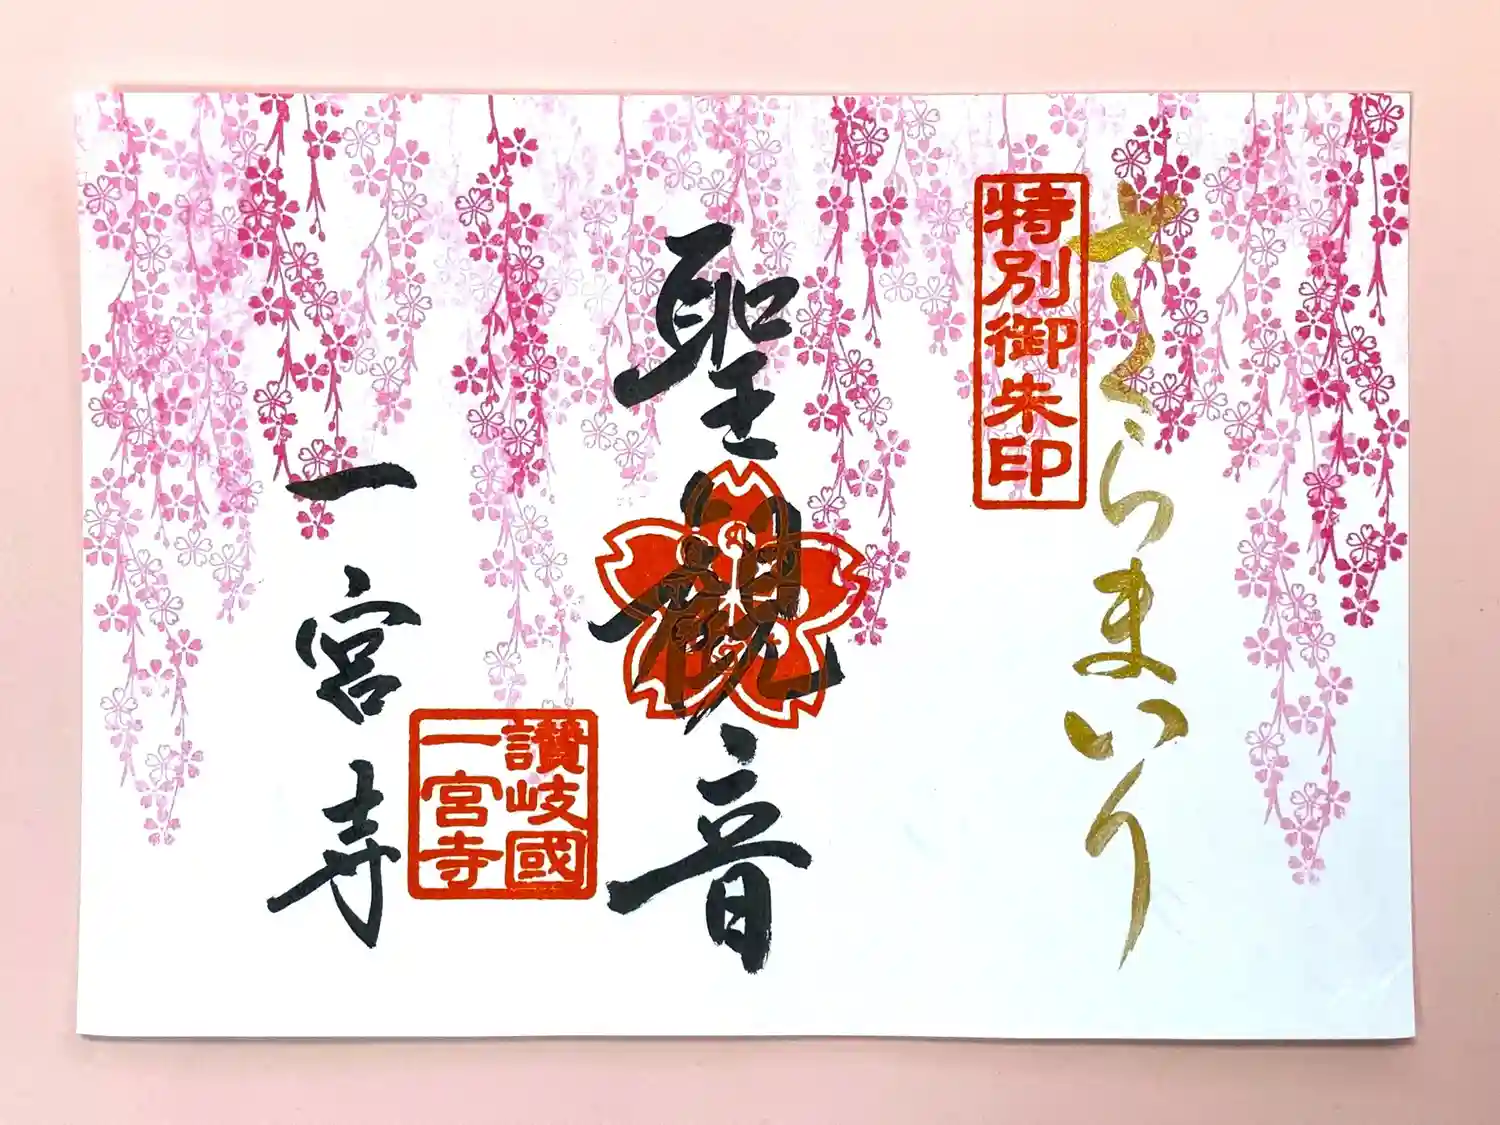 さくらまいり
特別御朱印
聖観音
讃岐國
一宮寺
一宮寺